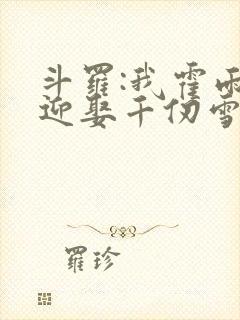 斗羅:我霍雨
迎娶千仞雪
羅珍